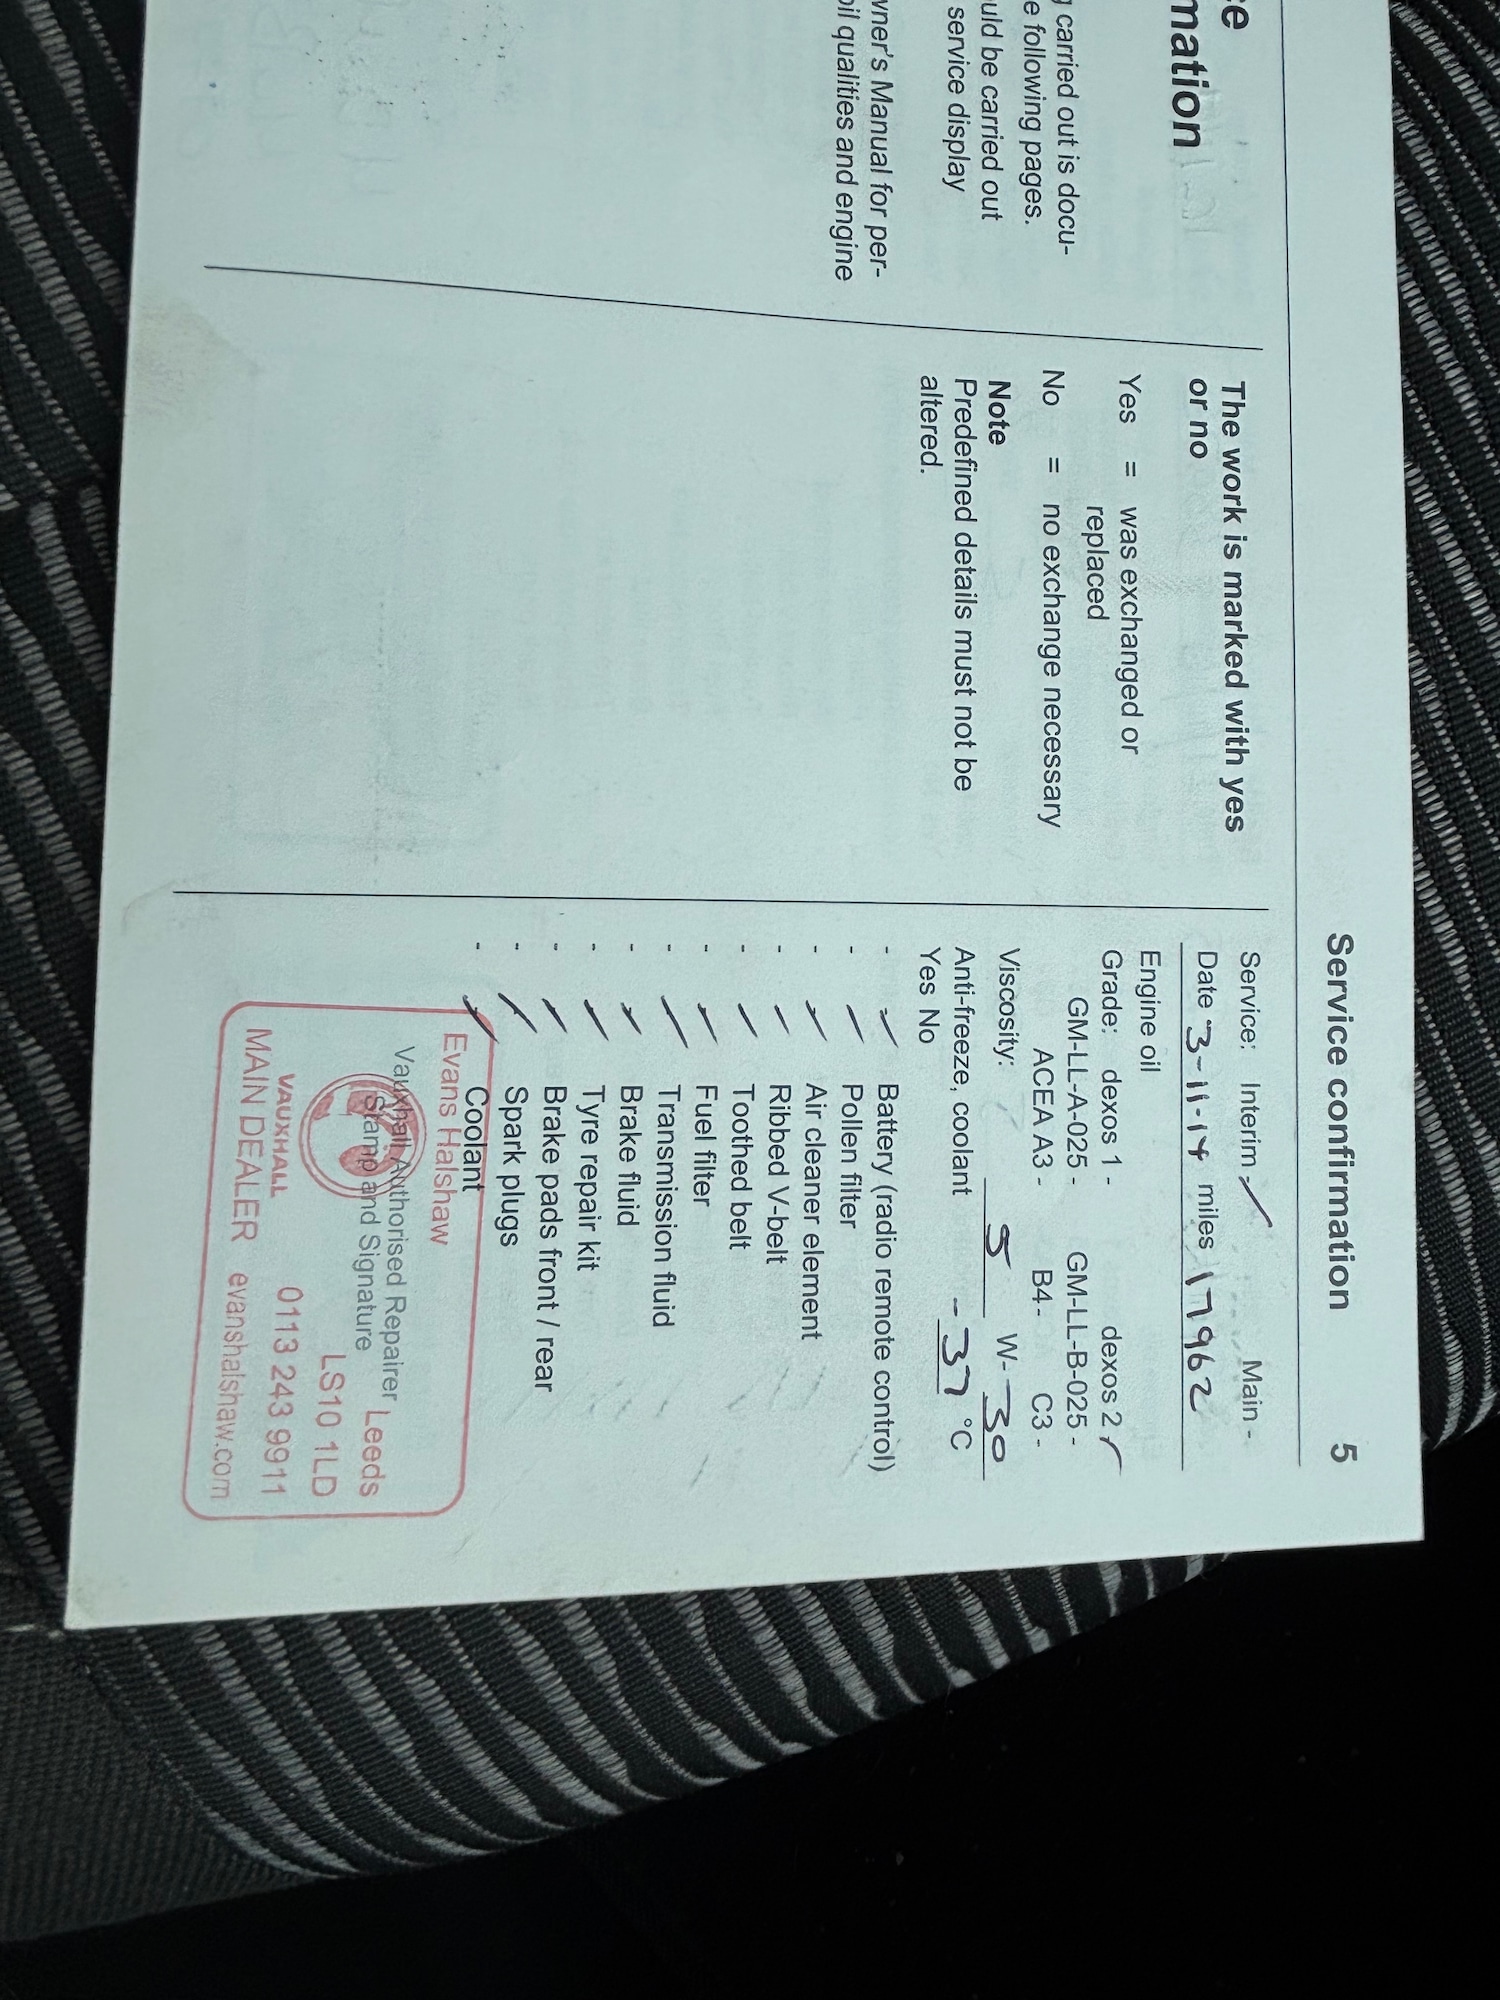 Service confirmation 5
ce
mation
g carried out is docu-
e following pages.
uld be carried out
service display
wner's Manual for per-
oil qualities and engine
The work is marked with yes
or no
Yes = was exchanged or
replaced
No = no exchange necessary
Note
Predefined details must not be
altered.
Service: Interim - ✓ Main -
Date 3-11-14 miles 17962
Engine oil
Grade: dexos 1 - dexos 2 ✓
GM-LL-A-025 - GM-LL-B-025 -
ACEA A3 - B4 - C3 -
Viscosity: 5 W- 30
Anti-freeze, coolant -37 °C
Yes No
- ✓ Battery (radio remote control)
- ✓ Pollen filter
- ✓ Air cleaner element
- ✓ Ribbed V-belt
- ✓ Toothed belt
- ✓ Fuel filter
- ✓ Transmission fluid
- ✓ Brake fluid
- ✓ Tyre repair kit
- ✓ Brake pads front / rear
- ✓ Spark plugs
- ✓ Coolant
Evans Halshaw
Vauxhall Authorised Repairer
Stamp and Signature
Leeds
LS10 1LD
VAUXHALL 0113 243 9911
MAIN DEALER evanshalshaw.com